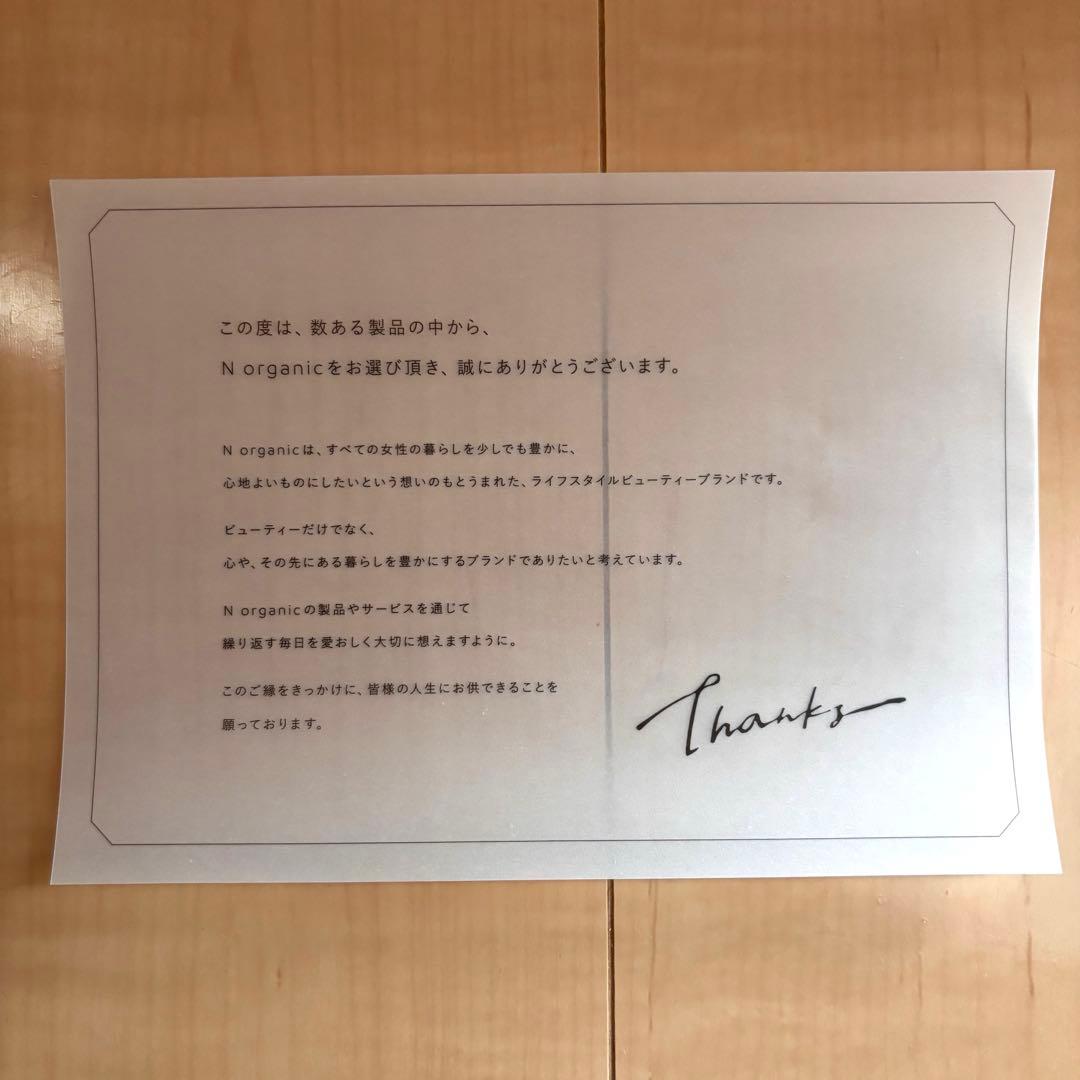 この度は、数ある製品の中から、
N organicをお選び頂き、誠にありがとうございます。
N organicは、すべての女性の暮らしを少しでも豊かに、
心地よいものにしたいという想いのもとうまれた、ライフスタイルビューティーブランドです。
ビューティーだけでなく、
心や、その先にある暮らしを豊かにするブランドでありたいと考えています。
N organicの製品やサービスを通じて
繰り返す毎日を愛おしく大切に想えますように。
このご縁をきっかけに、皆様の人生にお供できることを
願っております。
Thanks